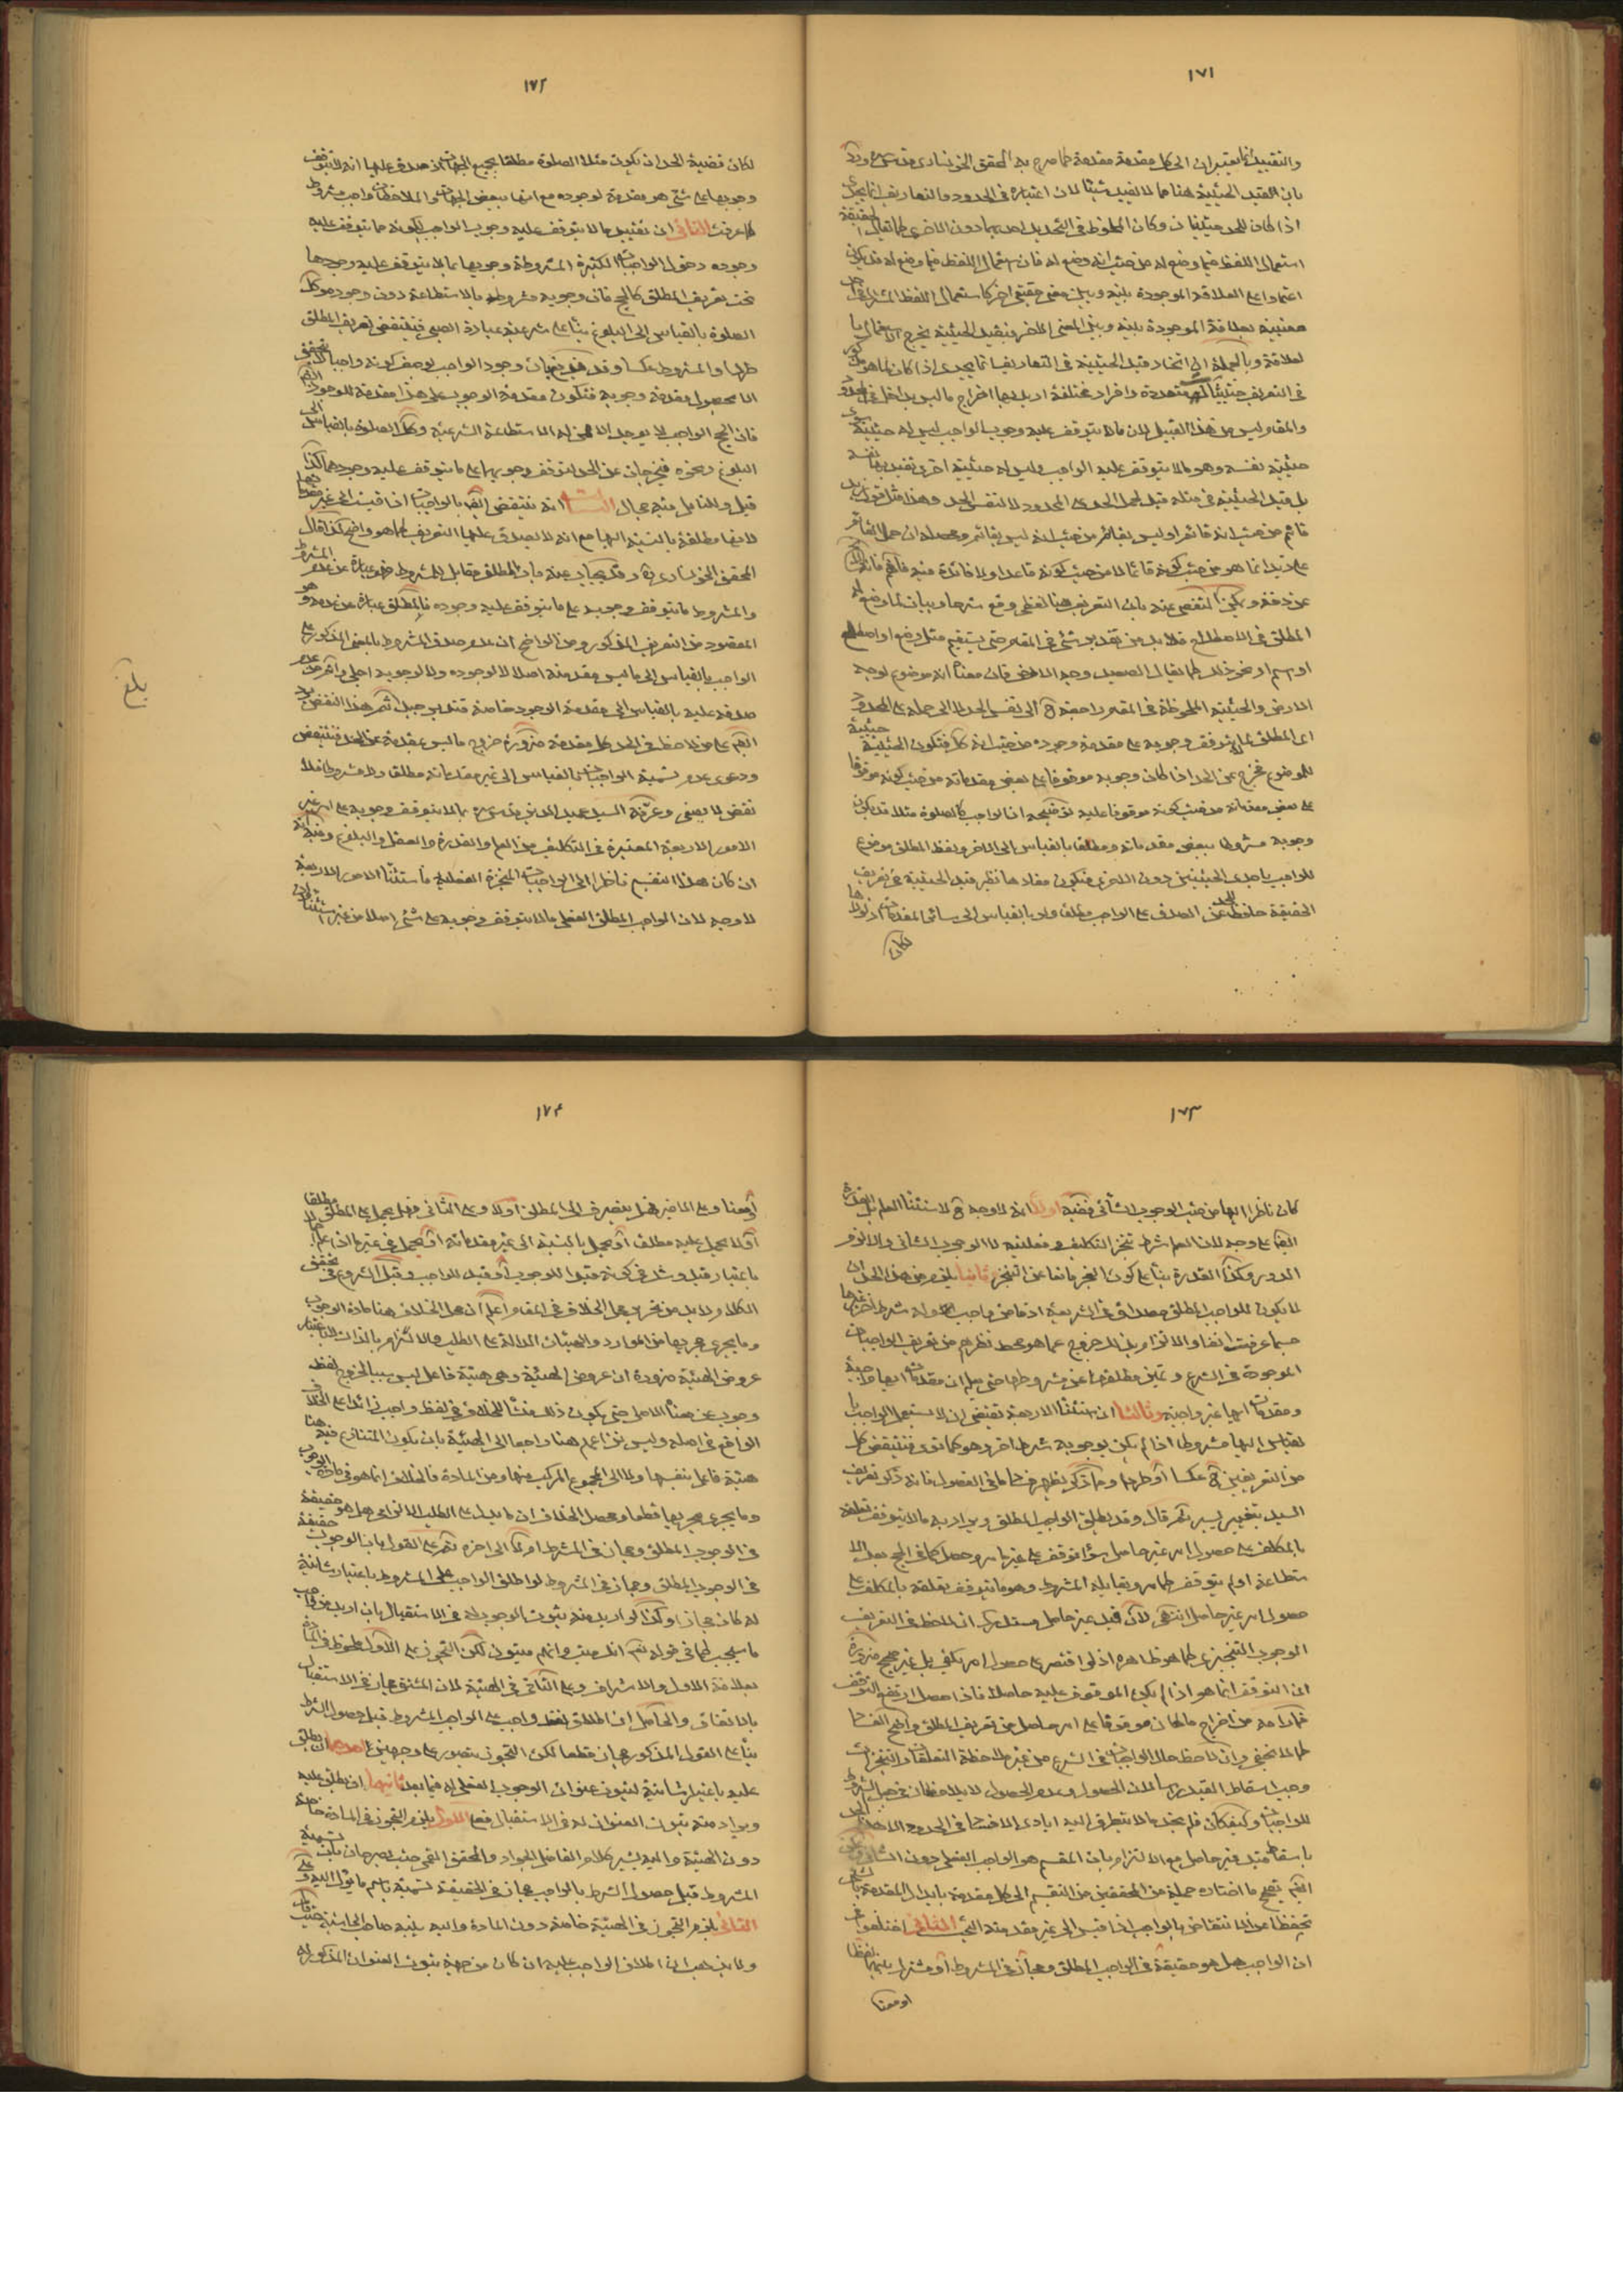 ١٧١
والتقييد انما يعتبران الى كل مقدمة مقدمة كما صرح به المحقق الخونسارى قدس سره
بان القيد الحيثية هنا مما لا يفيد شيئا لان اعتباره فى الحدود والتعاريف انما يجدى
اذا كان للحد حيثيتان وكان الملحوظ فى التحديد احديهما دون الاخرى كما يقال الحقيقة
استعمال اللفظ فيما وضع له من حيث انه وضع له فان استعمال اللفظ فيما وضع له قد يكون
اعتمادا على العلاقة الموجودة بينه وبين معنى حقيقى اخر كاستعمال اللفظ المشترك فى احد
معنييه بعلاقة الموجودة بينه وبين المعنى الاخر فبقيد الحيثية يخرج الاستعمال
لعلاقة وبالجملة ان اتخاد قيد الحيثية فى التعاريف انما يجدى اذا كان لما هو
فى التعريف حيثيات متعددة وافراد مختلفة اريد بها اخراج ما ليس بداخل فى الحدود
والمقام ليس من هذا القبيل لان ما لا يتوقف عليه وجوب الواجب ليس له حيثية
حيثية نفسه وهو ما لا يتوقف عليه الواجب وليس له حيثية اخرى تقيد بها نفسه
بل قيد الحيثية فى مثله قيد لحمل الحد على المحدود لا لنفس الحد وهذا مثل قولك زيد
قائم من حيث انه قائم او ليس بقائم من حيث انه ليس بقائم ومحصله ان حمل القائم
على زيد انما هو من حيث كونه قائما لا من حيث كونه قاعدا ولا فائدة فيه فافهم فانه
عن دقة ويمكن التفصى عنه بان التعريف هنا لفظى وقع شرحا وبيانا لما وضع له
المطلق فى الاصطلاح فلا بد من تقدير شئ فى المقام حتى يستقيم مثل وضع او اصطلح
او رسم او نحو ذلك كما يقال الصعيد وجه الارض فان معناه انه موضوع لوجه
الارض والحيثية الملحوظة فى المقام راجعة ح الى نفس الحد لا الى حمله على المحدود
اى المطلق ما لا يتوقف وجوبه على مقدمة وجوده من حيث انه كل فتكون الحيثية حيثية
للموضوع فخرج عن الحد اذا كان وجوبه موقوفا على بعض مقدماته من حيث كونه موقوفا
على بعض مقدماته من حيث كونه موقوفا عليه توضيحه ان الواجب كالصلوة مثلا قد يكون
وجوبه مشروطا ببعض مقدماته ومطلقا بالقياس الى الاخر ولفظ المطلق موضوع
للواجب باحدى الحيثيتين دون الاخرى فيكون مفادها نظير قيد الحيثية فى تعريف
الحقيقة حافظة للحد عن الصدق على الواجب ومطلقا ولو بالقياس الى سائر المقدمات اذ لولاها
لكان
١٧٢
لكان قضية الحد ان يكون مثل الصلوة مطلقا بجميع الجهات اذ صدق عليها انه لا يتوقف
وجوبها على شئ هو مقدمة لوجوده مع انها ببعض الجهات والملاحظات واجب مشروط
كما عرفت الثانى ان تقييد ما لا يتوقف عليه وجوب الواجب لكونه مما يتوقف عليه
وجوده دخول الواجبات الكثيرة المشروطة وجوبها بما لا يتوقف عليه وجودها
تحت تعريف المطلق كالحج فان وجوبه مشروط بالاستطاعة دون وجوده وكل
الصلوة بالقياس الى البلوغ بناء على شرعية عبادة الصبى فينتقض تعريف المطلق
طردا والمشروط عكسا وقد يدفع بان وجود الواجب لوصف كونه واجبا لا يتحقق
الا بحصول مقدمة وجوبه فتكون مقدمة الوجوب على هذا مقدمة للوجود ايضا
فان الحج الواجب لا يوجد الا ممن له الاستطاعة الشرعية وكذا الصلوة بالقياس الى
البلوغ ونحوه فيخرجان عن الحد لتوقف وجوبها على ما يتوقف عليه وجودهما كذا
قيل وللتامل فيه مجال الثالث انه ينتقض ايضا بالواجبات اذا قيست الى غير مقدماتها
لانها مطلقة بالنسبة اليها مع انه لا يصدق عليها التعريف كما هو واضح كذا قال
المحقق الخونسارى وقد يجاب عنه بان المطلق مقابل للمشروط فهو عبارة عن عدم المشروط
والمشروط ما يتوقف وجوبه على ما يتوقف عليه وجوده فالمطلق عبارة عن عدمه وهو
المقصود من التعريف المذكور ومن الواضح ان عدم صدق المشروط بالمعنى المذكور على
الواجب بالقياس الى ما ليس مقدمته اصلا لا لوجوده ولا لوجوبه اجلى واظهر من عدم
صدقه عليه بالقياس الى مقدمة الوجود خاصة فتدبر جيدا ثم هذا النقض يرد
ايضا على من لاحظ فى الحد كل مقدمة ضرورة خروج ما ليس بمقدمة عن الحد فينتقض
ودعوى عدم تسمية الواجبات بالقياس الى غير مقدماته مطلقا ولا مشروطا فلا
نقض لا يصغى وعرفه السيد عميد الدين قدس سره بما لا يتوقف وجوبه على امر غير
الامور الاربعة المعتبرة فى التكليف من العلم والقدرة والعقل والبلوغ وفيه انه
ان كان هذا التقسيم ناظرا الى الواجبات المنجزة الفعلية فاستثناء الامور الاربعة
لا وجه لان الواجب المطلق الفعلى ما لا يتوقف وجوبه على شئ اصلا من غير استثناء
بلغ
١٧٣
كان ناظرا اليها من حيث الوجوب الشأنى ففيه اولا انه لا وجه ح لاستثناء العلم بل القدرة
ايضا على وجه لان العلم شرط تنجز التكليف وفعليته لا الوجوب الشأنى والا لزم
الدور وكذا القدرة بناء على كون العجز مانعا عن التنجز وثانيا يلزم من هذا الحد ان
لا يكون للواجب المطلق مصداق فى الشريعة اذ ما من واجب الا وله شرط اخر غيرها
حسبما عرفت انفا والالتزام به خروج عما هو محط نظرهم من تعريف الواجبات
الموجودة فى الشرع وتميز مطلقها عن مشروطها حتى يعلم ان مقدمات ايها واجبة
ومقدمات ايها غير واجبة وثالثا ان استثناء الاربعة تقتضى ان لا يسمى الواجب
بالقياس اليها مشروطا اذا لم يكن لوجوبه شرط اخر وهو كما ترى فينتقض كل
من التعريفين ح عكسا او طردا ومما ذكر يظهر ضعف ما فى الفصول فانه ذكر تعريف
السيد بتغيير يسير ثم قال وقد يطلق الواجب المطلق ويراد به ما لا يتوقف تعلقه
بالمكلف على حصول امر غير حاصل سواء توقف على غير ما مر وحصل كما فى الحج بعد الا
ستطاعة او لم يتوقف كما مر ويقابله المشروط وهو ما يتوقف تعلقه بالمكلف على
حصول امر غير حاصل انتهى لان قيد غير حاصل مستدرك ان لاحظ فى التعريف
الوجوب التنجيزى كما هو ظاهره اذ لو اقتصر على حصول امر يكفى بل غير صحيح ضرورة
ان التوقف انما هو اذا لم يكن الموقوف عليه حاصلا فاذا حصل ارتفع التوقف
فما رامه من اخراج ما كان موقوفا على امر حاصل من تعريف المطلق واضح الفساد
كما لا يخفى وان لاحظ حال الواجبات فى الشرع من غير ملاحظة التعلق والتنجز
وجب اسقاط القيد راسا لان الحصول وعدم الحصول لا يلاحظان فى جعل الشرط
للواجبات وكيف كان فلم نجد ما لا يتطرق اليه ايادى الاختلال فى الحدود الا هذا الحد
باسقاط قيد غير حاصل مع الالتزام بان المقسم هو الواجب الفعلى دون الشأنى وعلى
ايضا يصح ما اختاره جملة من المحققين من التقسيم الى كل مقدمة بابدال المقدمة بالشئ
تحفظا عن الانتقاض بالواجب اذا قيس الى غير مقدمته البحث الثانى اختلفوا فى
ان الواجب هل هو حقيقة فى الواجب المطلق ومجاز فى المشروط او مشترك بينهما لفظا
او معنا
١٧٤
او معنا وعلى الاخير فهل ينصرف الى المطلق اولا وعلى الثانى فهل يحمل على المطلق مطلقا
او لا يحمل عليه مطلقا او يحمل بالنسبة الى غير مقدماته او يحمل فى غير ما اذا علم
باعتبار قيد وشك فى كونه قيدا للوجوب او قيد للواجب وقبل الشروع فى تحقيق
الكلام ولا بد من تحرير محل الخلاف فى المقام اعلم ان محل الخلاف هنا مادة الوجوب
وما يجرى مجريها من الموارد والهيئات الدالة على الطلب والالتزام بالذات لا باعتبار
عروض الهيئة ضرورة ان عروض الهيئة وهى هيئة فاعل ليس سببا لخروج لفظ
وجوب عن معناه الاصلى حتى يكون ذلك منشأ للخلاف فى لفظ واجب زائدا على الخلاف
الواقع فى اصله وليس نزاعهم هنا راجعا الى الهيئة بان يكون المتنازع فيه هنا
هيئة فاعل بنفسها ولا الى المجموع المركب منها ومن المادة فالخلاف انما هو فى مادة الوجوب
وما يجرى مجريها قطعا ومحصل الخلاف ان ما يدل على الطلب الالزامى هل هو حقيقة
فى الوجوب المطلق ومجاز فى المشروط او لا الى اخره ثم على القول بان الوجوب حقيقة
فى الوجوب المطلق ومجاز فى المشروط لو اطلق الواجب على المشروط باعتبار شأنية
له كان مجازا وكذا لو اريد منه ثبوت الوجوب له فى الاستقبال بان اريد من واجب
ما سيجب كما فى قوله تعالى انك ميت وانهم ميتون لكن التجوز على الاول ملحوظ فى المادة
بعلاقة الاول والاشراف وعلى الثانى فى الهيئة لان المشتق مجاز فى الاستقبال
بالاتفاق والحاصل ان اطلاق لفظ واجب على الواجب المشروط قبل حصول الشرط
بناء على القول المذكور مجاز قطعا لكن التجوز يتصور على وجهين احدهما ان يطلق
عليه باعتبار شأنية لثبوت عنوان الوجوب الفعلى له فيما بعد ثانيهما ان يطلق عليه
ويراد منه ثبوت العنوان له فى الاستقبال فعلى الاول يلزم التجوز فى المادة خاصة
دون الهيئة واليه يشير كلام الفاضل الجواد والمحقق القمى حيث يصرحان بان تسمية
المشروط قبل حصول الشرط بالواجب مجاز فى الحقيقة تسمية باسم ما يؤل اليه وعلى
الثانى يلزم التجوز فى الهيئة خاصة دون المادة واليه ينبه صاحب الحاشية حيث قال
ولا يذهب ان اطلاق الواجب عليه ان كان من جهة ثبوت العنوان المذكور له